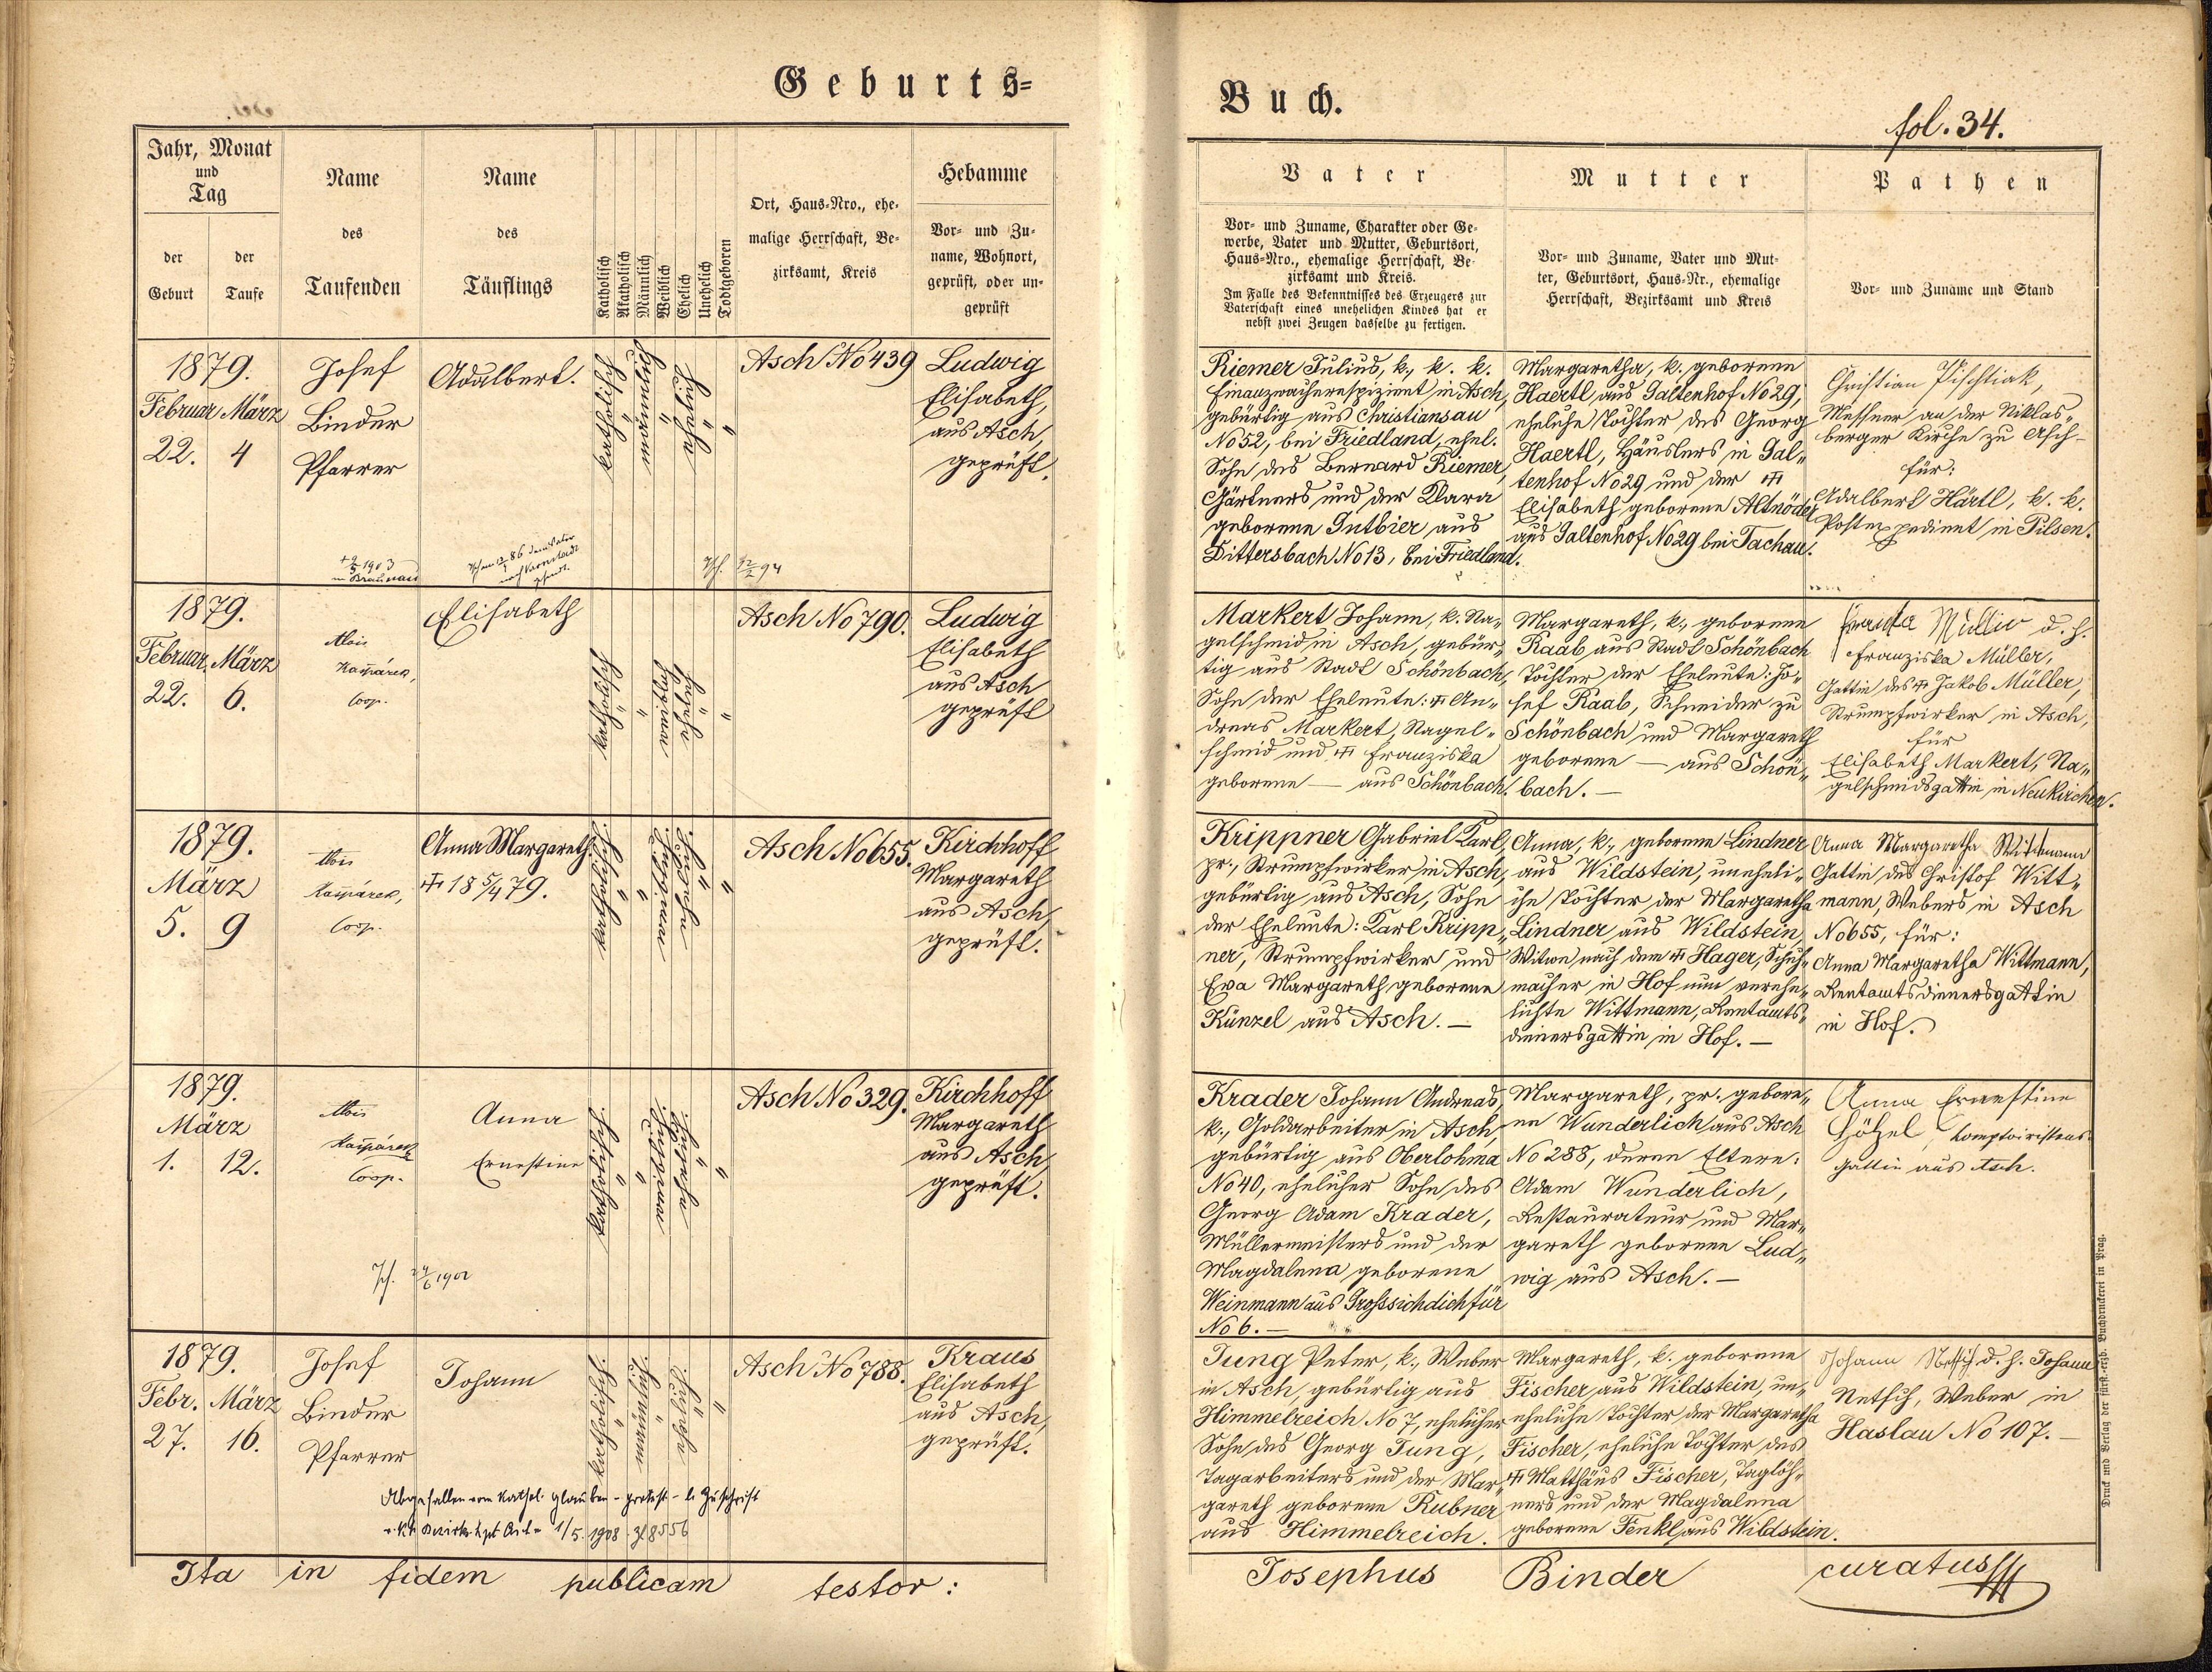 Geburts=
Jahr, Monat
und
Tag
der
Geburt
der
Taufe
Name
des
Taufenden
Name
des
Täuflings
Katholisch
Akatholisch
Männlich
Weiblich
Ehelich
Unehelich
Todtgeboren
Ort, Haus-Nro., ehe-
malige Herrschaft, Be-
zirksamt, Kreis
Hebamme
Vor- und Zu-
name, Wohnort,
geprüft, oder un-
geprüft
1879.
Februar März
22. 4
Josef
Binder
Pfarrer
Adalbert.
katholisch
Asch No 439
Ludwig
Elisabeth,
aus Asch,
geprüft.
1903
1879.
Februar März
22. 6.
Alois
Kašpárek,
Coop.
Elisabeth
katholisch
Asch No 790.
Ludwig
Elisabeth
aus Asch
geprüft
1879.
März
5. 9
Alois
Kašpárek,
Coop.
Anna Margareth
18 5/4 79.
katholisch
Asch No 655.
Kirchhoff
Margareth
aus Asch,
geprüft.
1879.
März
1. 12.
Alois
Kašpárek
Coop.
Anna
Ernestine
katholisch
Asch No 329.
Kirchhoff
Margareth
aus Asch,
geprüft.
1879.
Febr. März
27. 16.
Josef
Binder
Pfarrer
Johann
katholisch
Asch No 788.
Kraus
Elisabeth
aus Asch,
geprüft.
Abgefallen vom kathol. Glauben - protest - l. Zuschrift
1/5. 1908 Zl 8556
Ita in fidem publicam testor:
Buch.
fol. 34.
Vater
Vor- und Zuname, Charakter oder Ge-
werbe, Vater und Mutter, Geburtsort,
Haus-Nro., ehemalige Herrschaft, Be-
zirksamt und Kreis.
Im Falle des Bekenntnisses des Erzeugers zur
Vaterschaft eines unehelichen Kindes hat er
nebst zwei Zeugen dasselbe zu fertigen.
Mutter
Vor- und Zuname, Vater und Mut-
ter, Geburtsort, Haus-Nr., ehemalige
Herrschaft, Bezirksamt und Kreis
Pathen
Vor- und Zuname und Stand
Riemer Julius, k., k. k.
Finanzwachrespizient in Asch,
gebürtig aus Christiansau
No 52, bei Friedland, ehel.
Sohn des Bernard Riemer,
Gärtners und der Klara
geborene Gutbier aus
Dittersbach No 13, bei Friedland.
Margaretha, k. geborene
Haertl aus Galtenhof No 29,
eheliche Tochter des Georg
Haertl, Häuslers in Gal„
tenhof No 29 und der ✝
Elisabeth geborene Altnöder
aus Galtenhof No 29 bei Tachau.
Christian Pischtiak,
Messner an der Niklas„
berger Kirche zu Asch –
für:
Adalbert Härtl, k. k.
Postexpedient in Pilsen.
Markert Johann, k. Na„
gelschmid in Asch, gebür„
tig aus Stadt Schönbach,
Sohn der Eheleute: ✝ An„
dreas Markert, Nagel„
schmid und ✝ Franziska
geborene — aus Schönbach.
Margareth, k., geborene
Raab aus Stadt Schönbach
Tochter der Eheleute: Jo„
sef Raab, Schneider zu
Schönbach und Margareth
geborene — aus Schön„
bach. —
d. h.
Franziska Müller,
Gattin des ✝ Jakob Müller,
Strumpfwirker in Asch,
für
Elisabeth Markert, Na„
gelschmidsgattin in Neukirchen.
Krippner Gabriel Karl,
pr., Strumpfwirker in Asch,
gebürtig aus Asch, Sohn
der Eheleute: Karl Kripp„
ner, Strumpfwirker und
Eva Margareth geborene
Künzel aus Asch. —
Anna, k., geborene Lindner
aus Wildstein, uneheli„
che Tochter der Margaretha
Lindner aus Wildstein,
Witwe nach dem ✝ Hager, Schuh„
macher in Hof nun verehe„
lichte Wittmann, Rentamts„
dienersgattin in Hof. —
Anna Margaretha Wittmann
Gattin des Christof Witt„
mann, Webers in Asch
No 655, für:
Anna Margaretha Wittmann,
Rentamtsdienersgattin
in Hof.
Krader Johann Andreas
k., Goldarbeiter in Asch,
gebürtig aus Oberlohma
No 40, ehelicher Sohn des
Georg Adam Krader,
Müllermeisters und der
Magdalena geborene
Weinmann aus Grosssichdichfür
No 6. —
Margareth, pr. gebore„
ne Wunderlich aus Asch
No 288, deren Eltern:
Adam Wunderlich,
Restaurateur und Mar„
gareth geborene Lud„
wig aus Asch. —
Anna Ernestine
Hölzel, Komptoiristens
gattin aus Asch.
Jung Peter, k., Weber
in Asch, gebürtig aus
Himmelreich No 7, ehelicher
Sohn des Georg Jung,
Tagarbeiters und der Mar„
gareth geborene Rubner
aus Himmelreich.
Margareth, k. geborene
Fischer aus Wildstein, un„
eheliche Tochter der Margaretha
Fischer, eheliche Tochter des
✝ Matthäus Fischer, Taglöh„
ners und der Magdalena
geborene Fenkl aus Wildstein.
Johann Netsch d. h. Johann
Netsch, Weber in
Haslau No 107. —
Josephus Binder curatus
Druck und Verlag der fürst-erzb. Buchdruckerei in Prag.